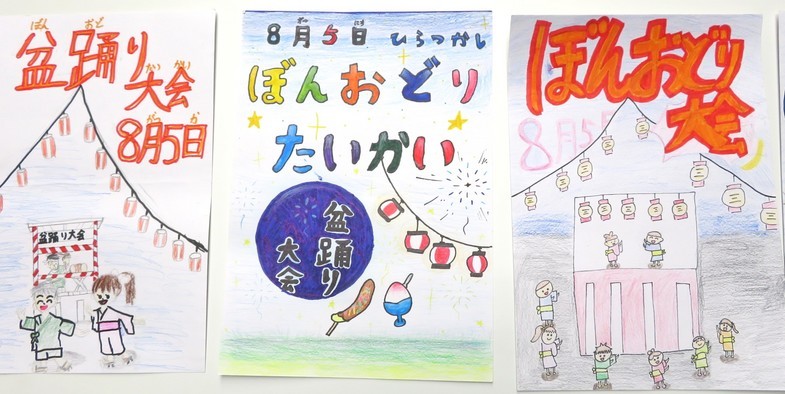 ぼん おど
盆踊り
たい かい
大会
がつ か
8月5日
盆踊り大会
8月5日 ひらつかし
ぼんおどり
たいかい
盆踊り
大会
ぼんおどり
大会
8月5
三
三
三
三
三
三
三
三
三
三